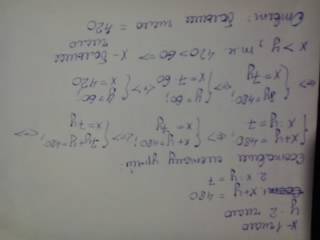 x - 1 число
y - 2 число
x+y = 480
x : y = 7
Составим систему ур-ий
{x+y=480; {x+y=480; {7y+y=480
{x:y=7 <=> {x=7y <=> {x=7y <=>
<=> {8y=480; {y=60; {y=60;
{x=7y <=> {x=7·60 <=> {x=420
x > y, т.к. 420>60 => x - большее
число
Ответ: большее число = 420